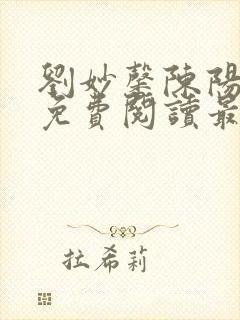 劉妙馨陳陽
免費閱讀最
拉希莉